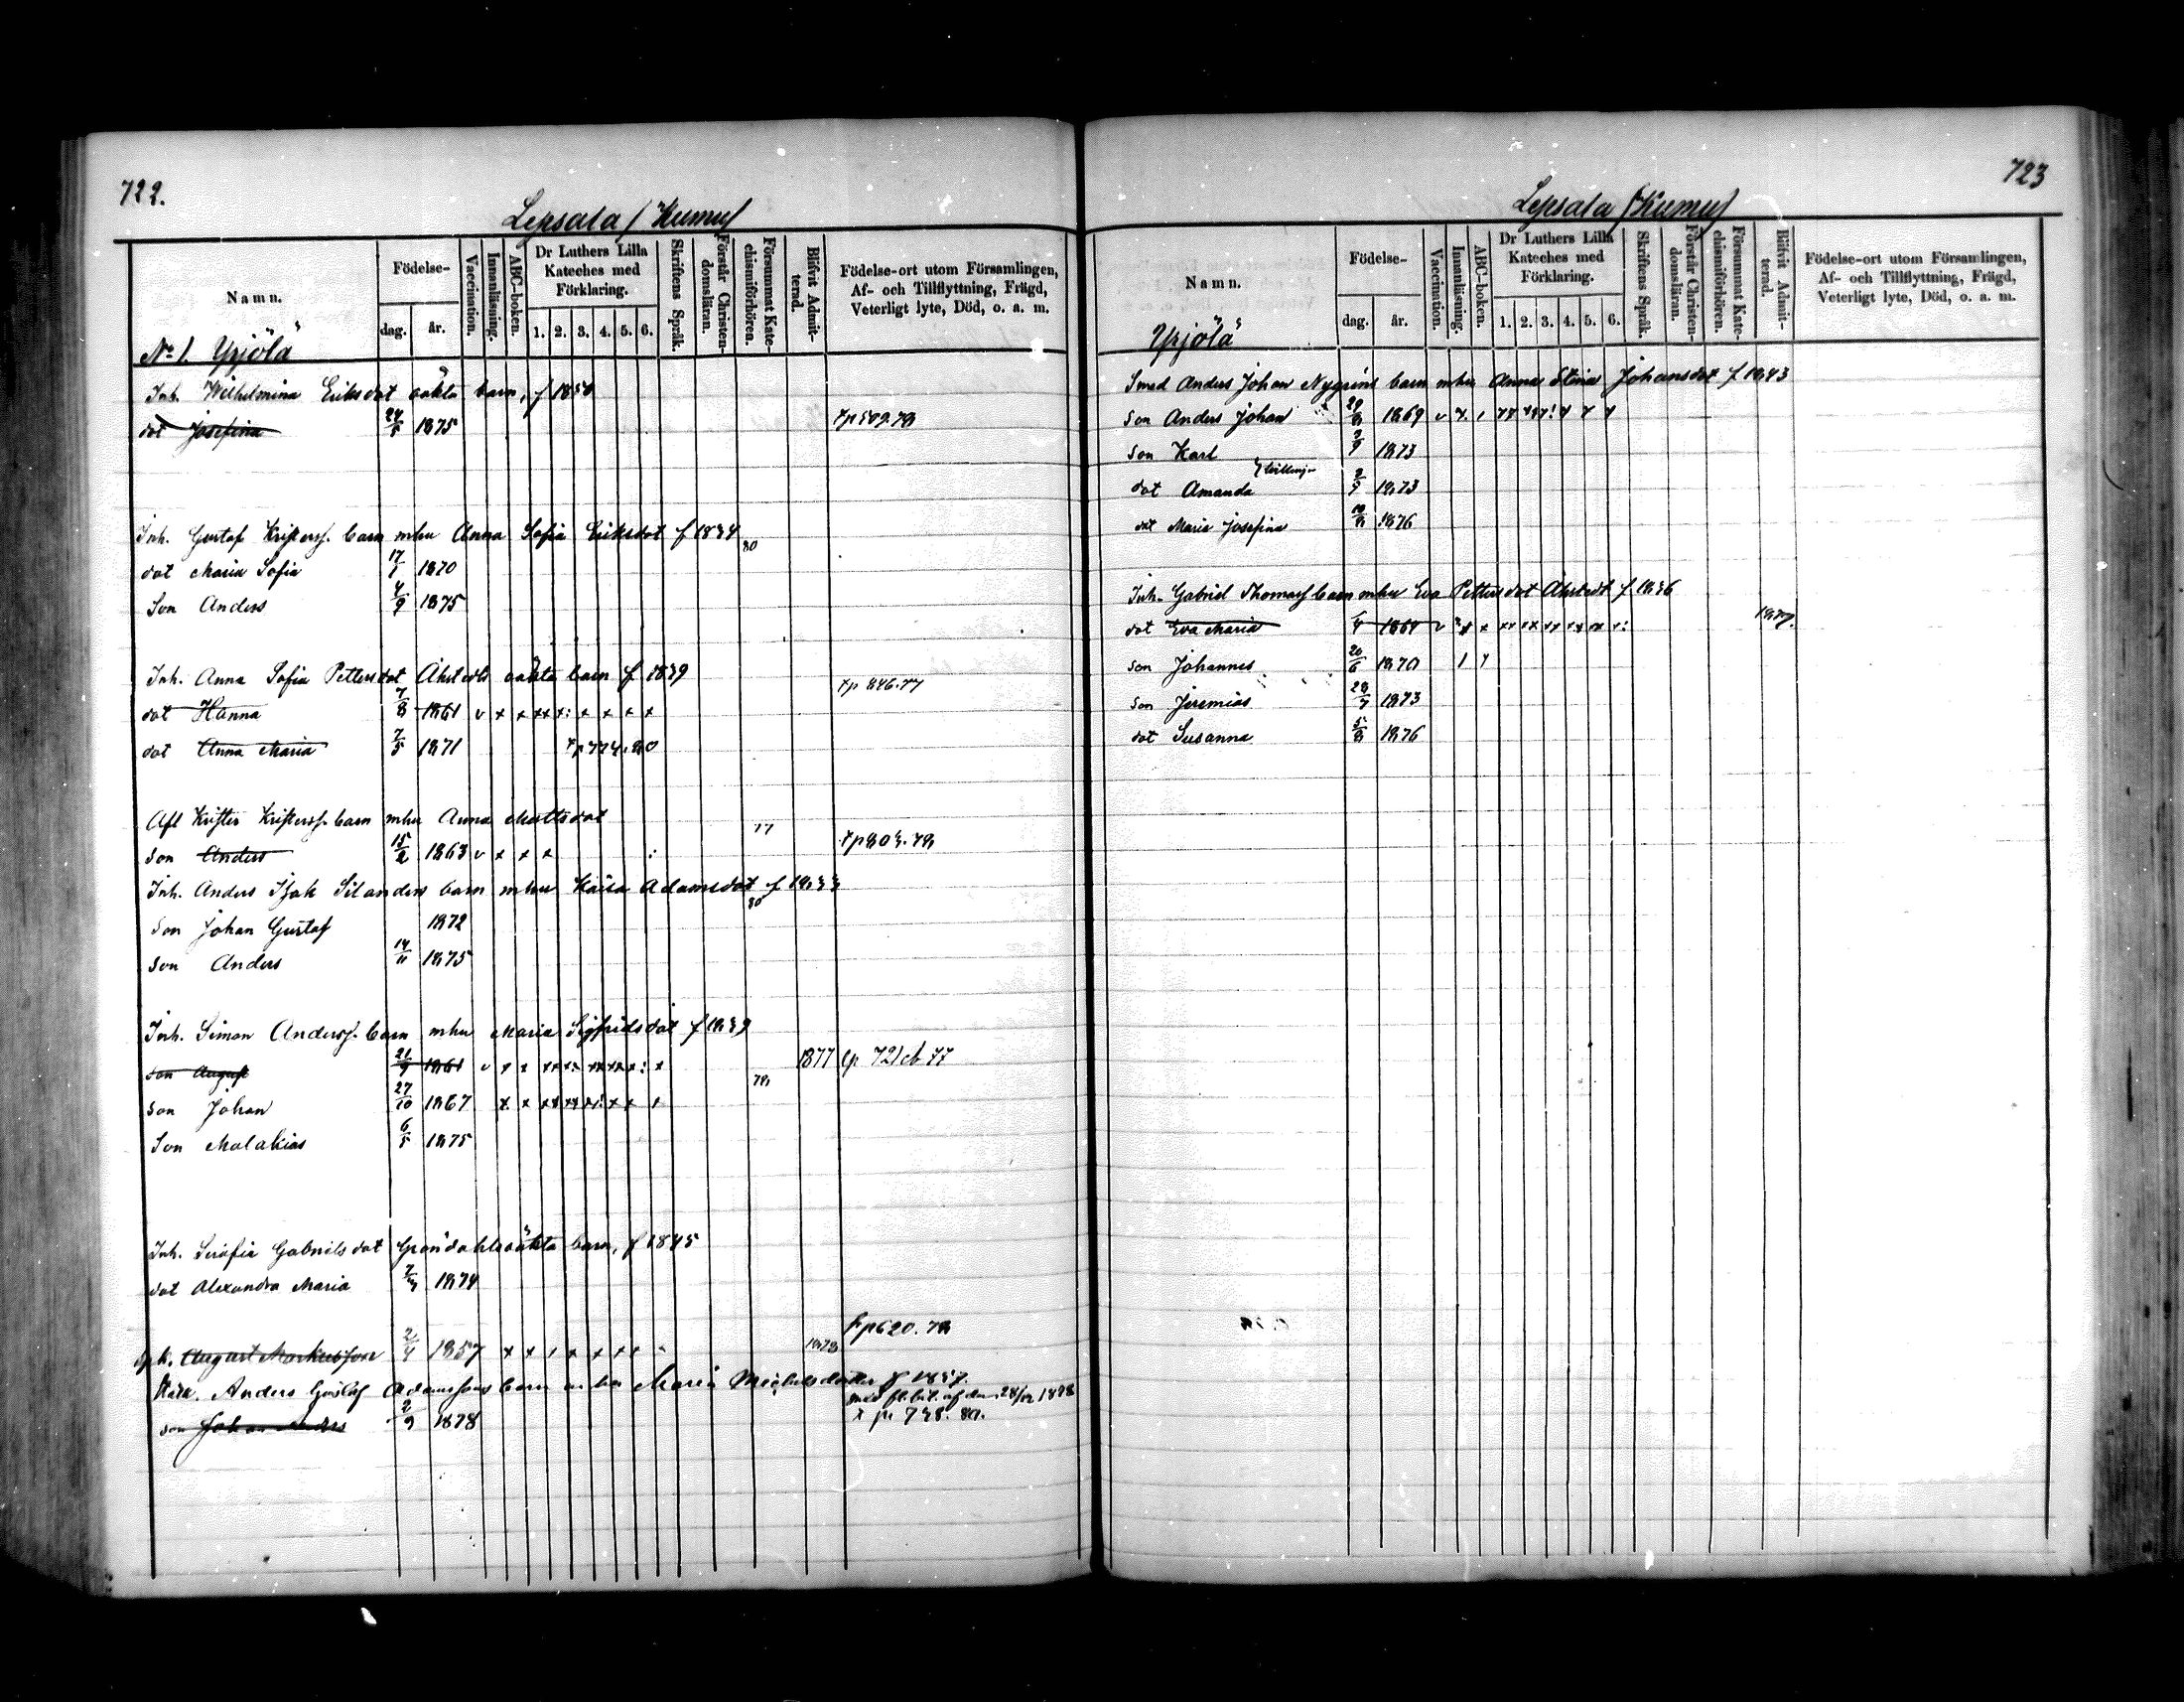 722.
Lepsala / Kumu/
Namn.
Födelse-
dag.
år.
Vaccination.
Innanläsning.
ABC-boken.
Dr Luthers Lilla Kateches med Förklaring.
1. 2. 3. 4. 5. 6.
Skriftens Språk.
Förstår Christen-domsläran.
Försummat Kate-chismiförhören.
Blifvit Admit-terad.
Födelse-ort utom Församlingen, Af- och Tillflyttning, Frägd, Veterligt lyte, Död, o. a. m.
No 1. Ypjölä
Inh. Wilhelmina Eriksdot oäkta barn, f 1850
dot Josefina 24/5 1875
Inh. Gustaf Kristerss. barn mhu Anna Sofia Eriksdot f 1834
80
dot Maria Sofia 17/1 1870
Son Anders 4/9 1875
Inh. Anna Sofia Pettersdot Åhstedts oäkta barn f 1839
dot Hanna 7/8 1861 v x x xx x: x x x x xp 846.77
dot Anna Maria 7/5 1871 xp 774.80
Afl Krister Kristerss. barn mhu Anna Mattsdot
77
Son Anders 15/2 1863 v x x x : xp 803.78
Inh. Anders Isak Silanders barn mhu Kaisa Adamsdot f 1833
80
Son Johan Gustaf 1872
Son Anders 14/11 1875
Inh. Simon Anderss. barn mhu Maria Sigfridsdot f 1839
son August 21/9 1861 1877 (p 721 cb 77
78
son Johan 27/10 1867
Son Malakias 6/5 1875
Inh. Serafia Gabrielsdot Gröndahls oäkta barn, f 1845
dot Alexandra Maria 1874
August Markusson 2/4 1857 1878 p 620.78
Anders Gustaf Adamssons barn m hu Maria Michelsdotter f 1857.
med fl. bet. af den 28/12 1878
son Johan Anders 2/9 1878 x p. 738. 80.
723
Lepsala /Kumu/
Namn.
Födelse-
dag.
år.
Vaccination.
Innanläsning.
ABC-boken.
Dr Luthers Lilla Kateches med Förklaring.
1. 2. 3. 4. 5. 6.
Skriftens Språk.
Förstår Christen-domsläran.
Försummat Kate-chismiförhören.
Blifvit Admit-terad.
Födelse-ort utom Församlingen, Af- och Tillflyttning, Frägd, Veterligt lyte, Död, o. a. m.
Ypjölä
Smed Anders Johan Nygrens barn mhu Anna Stina Johansdot f 1843
Son Anders Johan 29/8 1869
Son Karl 2/9 1873
tvillingar
dot Amanda 2/9 1873
dot Maria Josefina 10/8 1876
Inh. Gabriel Thomass barn mhu Eva Pettersdot Åhstedt f 1836
dot Eva Maria 1861 1877.
son Johannes 20/6 1870
Son Jeremias 28/7 1873
dot Susanna 5/8 1876